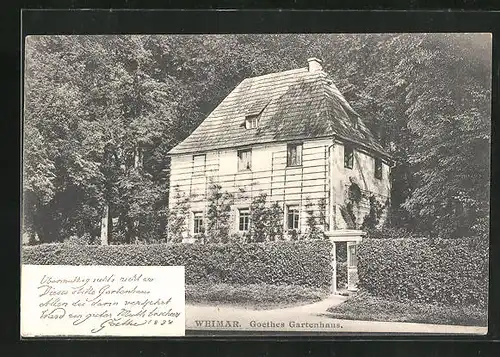 Übermüthig sieht's nicht aus
Dieses stille Gartenhaus
Allen die darin verkehrt
Ward ein guter Muth bescheert
Goethe 1828
WEIMAR. Goethes Gartenhaus.